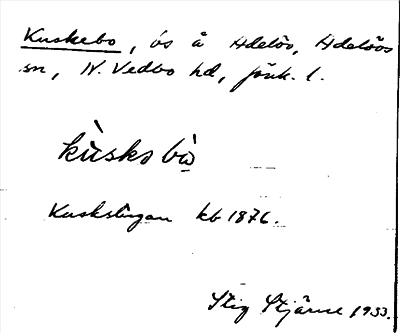 Kuskebo, ös å Adelöv, Adelövs
sn, N. Vedbo hd, Jönk. l.
kùskɘ bò
Kuskstugan kb 1876.
Stig Stjärne 1933.